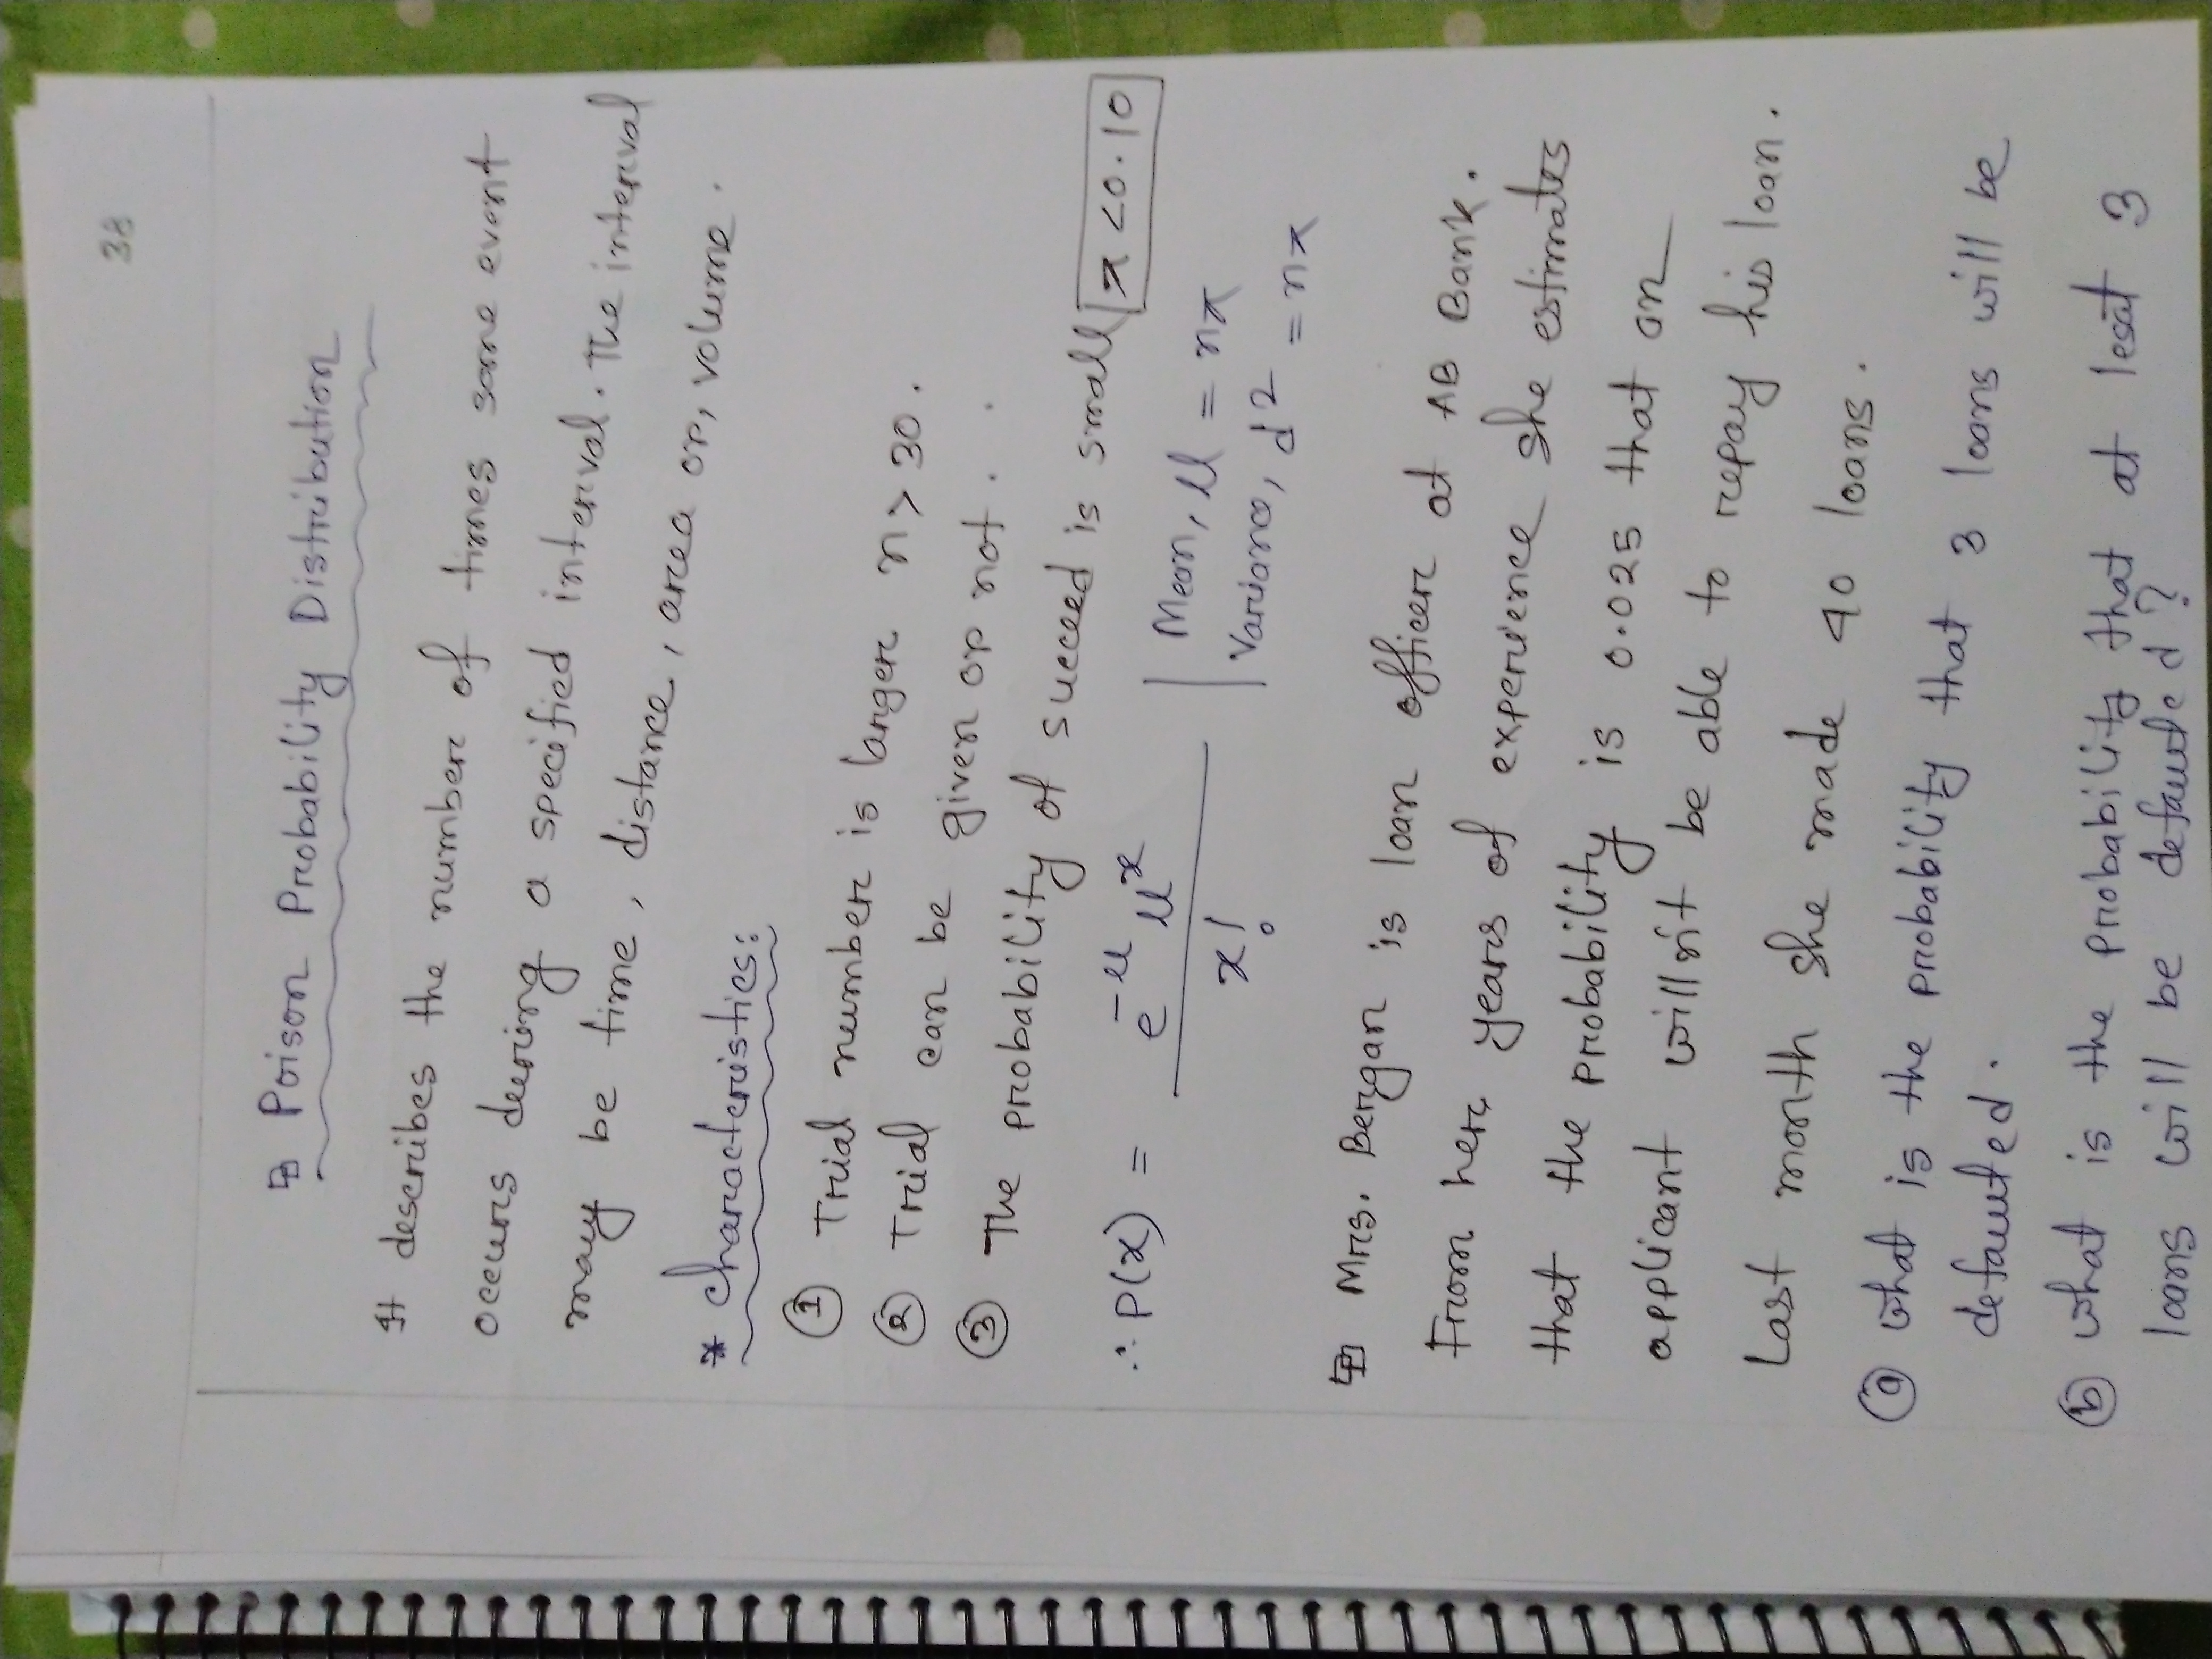 38
Poison Probability Distribution
It describes the number of times some event
occurs during a specified interval. The interval
may be time, distance, area or, volume.
* Characteristics:
① Trial number is larger n > 30.
② Trial can be given or not.
③ The probability of succeed is small π < 0.10
∴ P(x) = e^-μ μ^x / x!
Mean, μ = nπ
Variance, d2 = nπ
Mrs. Bergan is loan officer at AB Bank.
From her years of experience she estimates
that the probability is 0.025 that an
applicant will n't be able to repay his loan.
Last month she made 40 loans.
ⓐ what is the probability that 3 loans will be
defaulted.
ⓑ what is the probability that at lesat 3
loans will be defaulted?